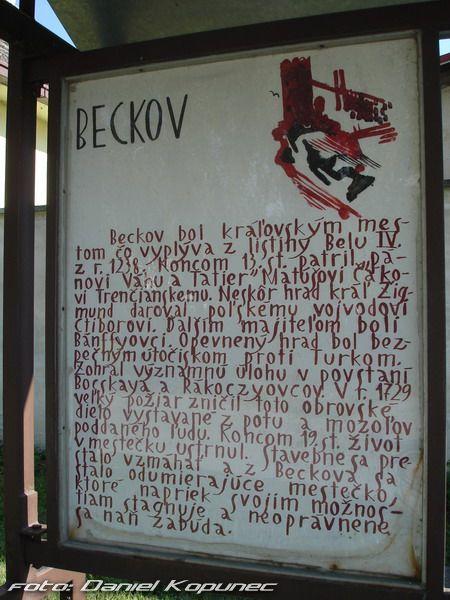 BECKOV
Beckov bol kráľovským mes-
tom čo vyplýva z listiny Belu IV.
z r. 1238. Koncom 13. st. patril „pá-
novi Váhu a Tatier" Matúšovi Čáko-
vi Trenčianskemu. Neskôr hrad kráľ Žig-
mund daroval poľskému vojvodovi
Ctiborovi. Ďalším majiteľom boli
Bánffyovci. Opevnený hrad bol bez-
pečným útočiskom proti turkom.
Zohral významnú úlohu v povstaní
Bocskaya a Rakoczyovcov. V r. 1729
veľký požiar zničil toto obrovské
dielo vystavané z potu a mozoľov
poddaného ľudu. Koncom 19. st. život
v mestečku ustrnul. Stavebne sa pre
stalo vzmáhať a z Beckova sa
stalo odumierajúce mestečko,
ktoré napriek svojim možnos-
tiam stagnuje a neoprávnene
sa naň zabúda.
foto: Daniel Kopunec